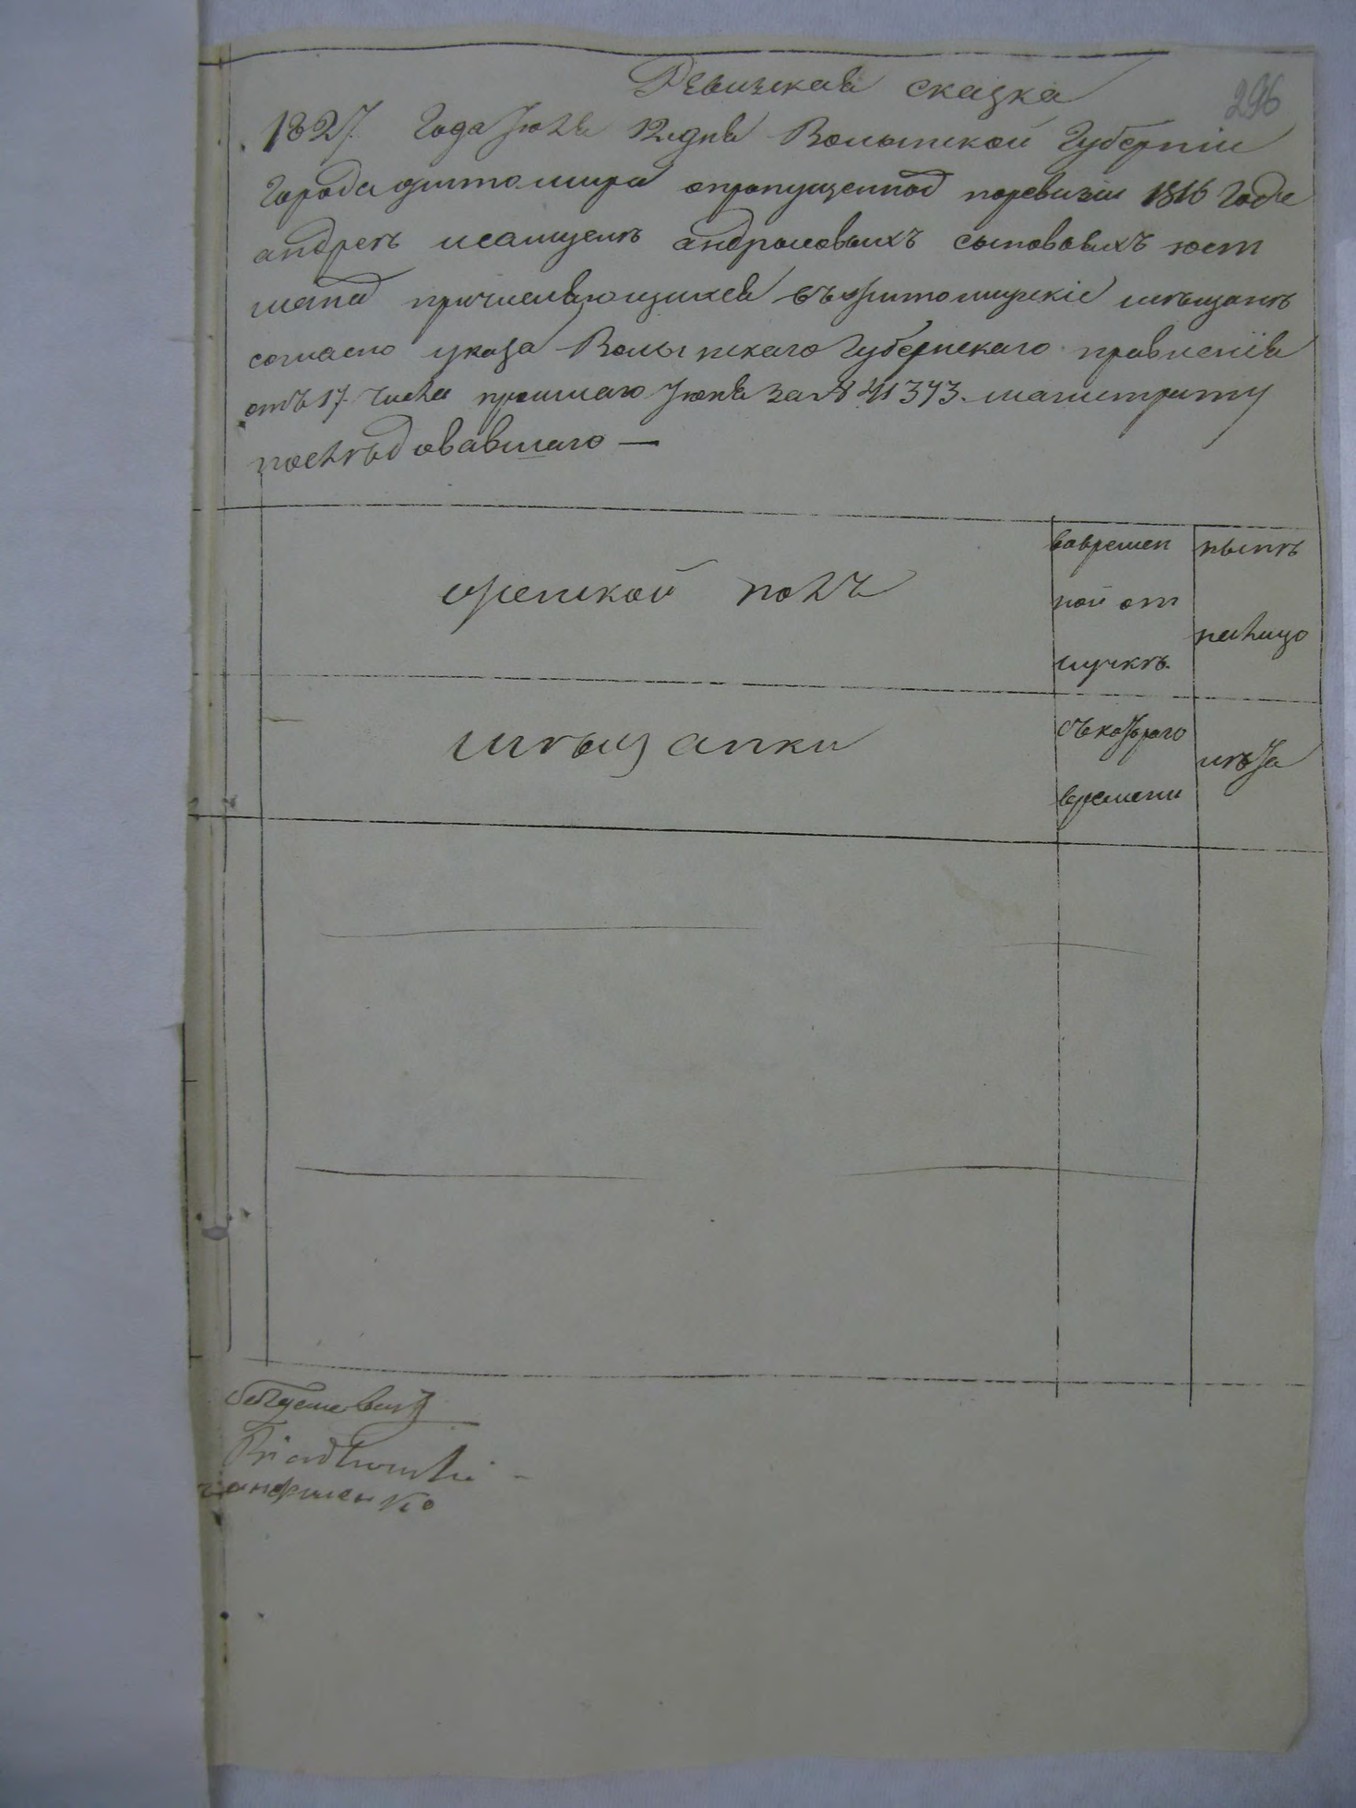 Ревижская сказка
296
1827. Года Июля 12 дня Волынской Губернии
Города Житомира опропущенной поревизии 1816 Года
андрею исамуелю андроновыхъ сыновьяхъ
причисляющихся въ житомирские мещане
согласно указа Волынскаго Губернскаго правления
отъ 17. числа прошлаго Июня за № 41373. магистрату
последовавшаго —
женской полъ
вовремен
ной от
лучке.
ныне
налицо
мещанки
съ котораго
времени
лета